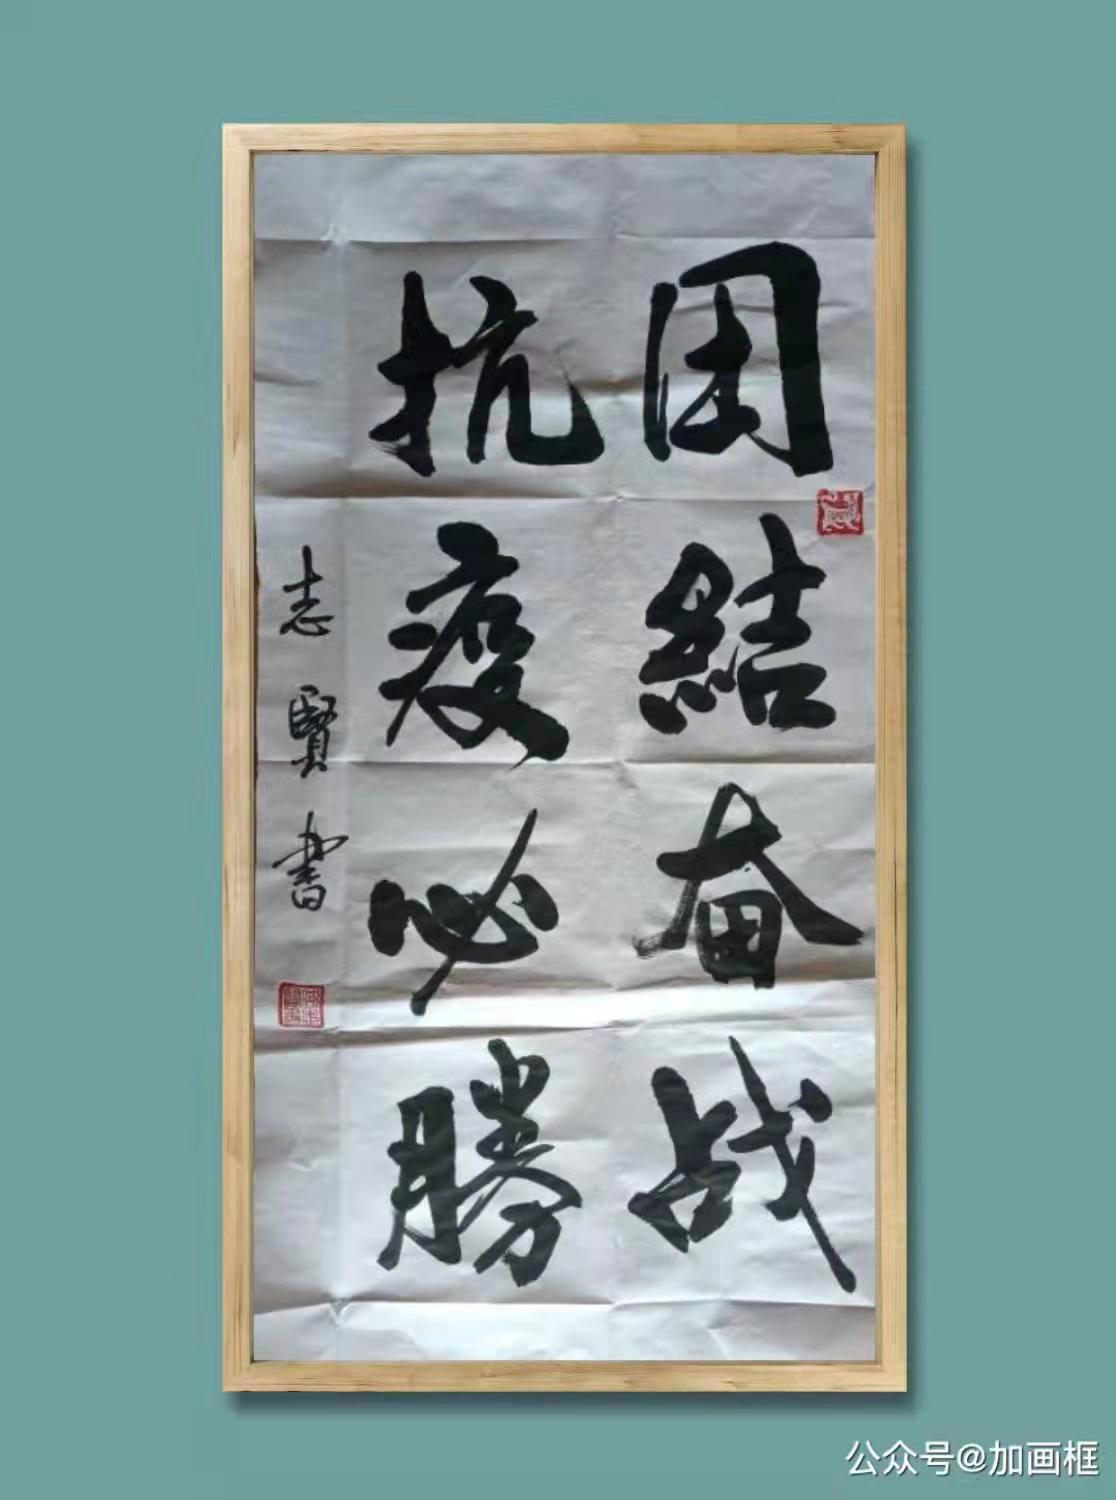 团結奋战
抗疫必勝
志賢書
公众号@加画框